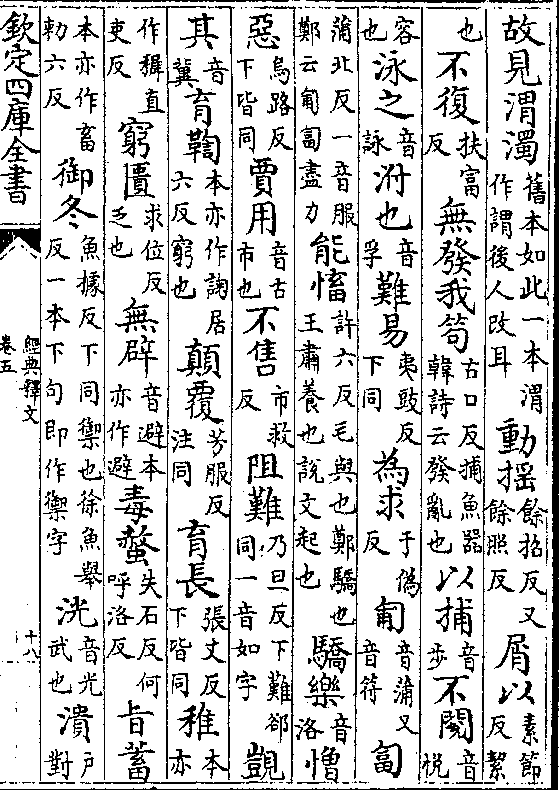 故見渭濁舊本如此一本渭作謂後人改耳動揺餘招反又餘照反屑以素節反絜
也不復扶富反無發我笱古口反捕魚器韓詩云發亂也以捕音步不閱音悅
容也泳之音詠泭也音孚難易夷豉反下同為求于偽反匍音蒲又音符匐
蒲北反一音服鄭云匍匐盡力能慉許六反毛與也鄭驕也王肅養也說文起也驕樂音洛憎
惡烏路反下皆同賈用音古市也不售市救反阻難乃旦反下難卻同一音如字覬
其音冀育鞫本亦作諊居六反窮也顛覆芳服反注同育長張丈反下皆同稚本亦
作穉直吏反窮匱求位反乏也無辟音避本亦作避毒螫失石反何呼洛反旨蓄
本亦作畜勑六反御冬魚據反下同禦也徐魚舉反一本下句即作禦字洸音光武也潰戶對
欽定四庫全書
經典釋文
卷五
十八